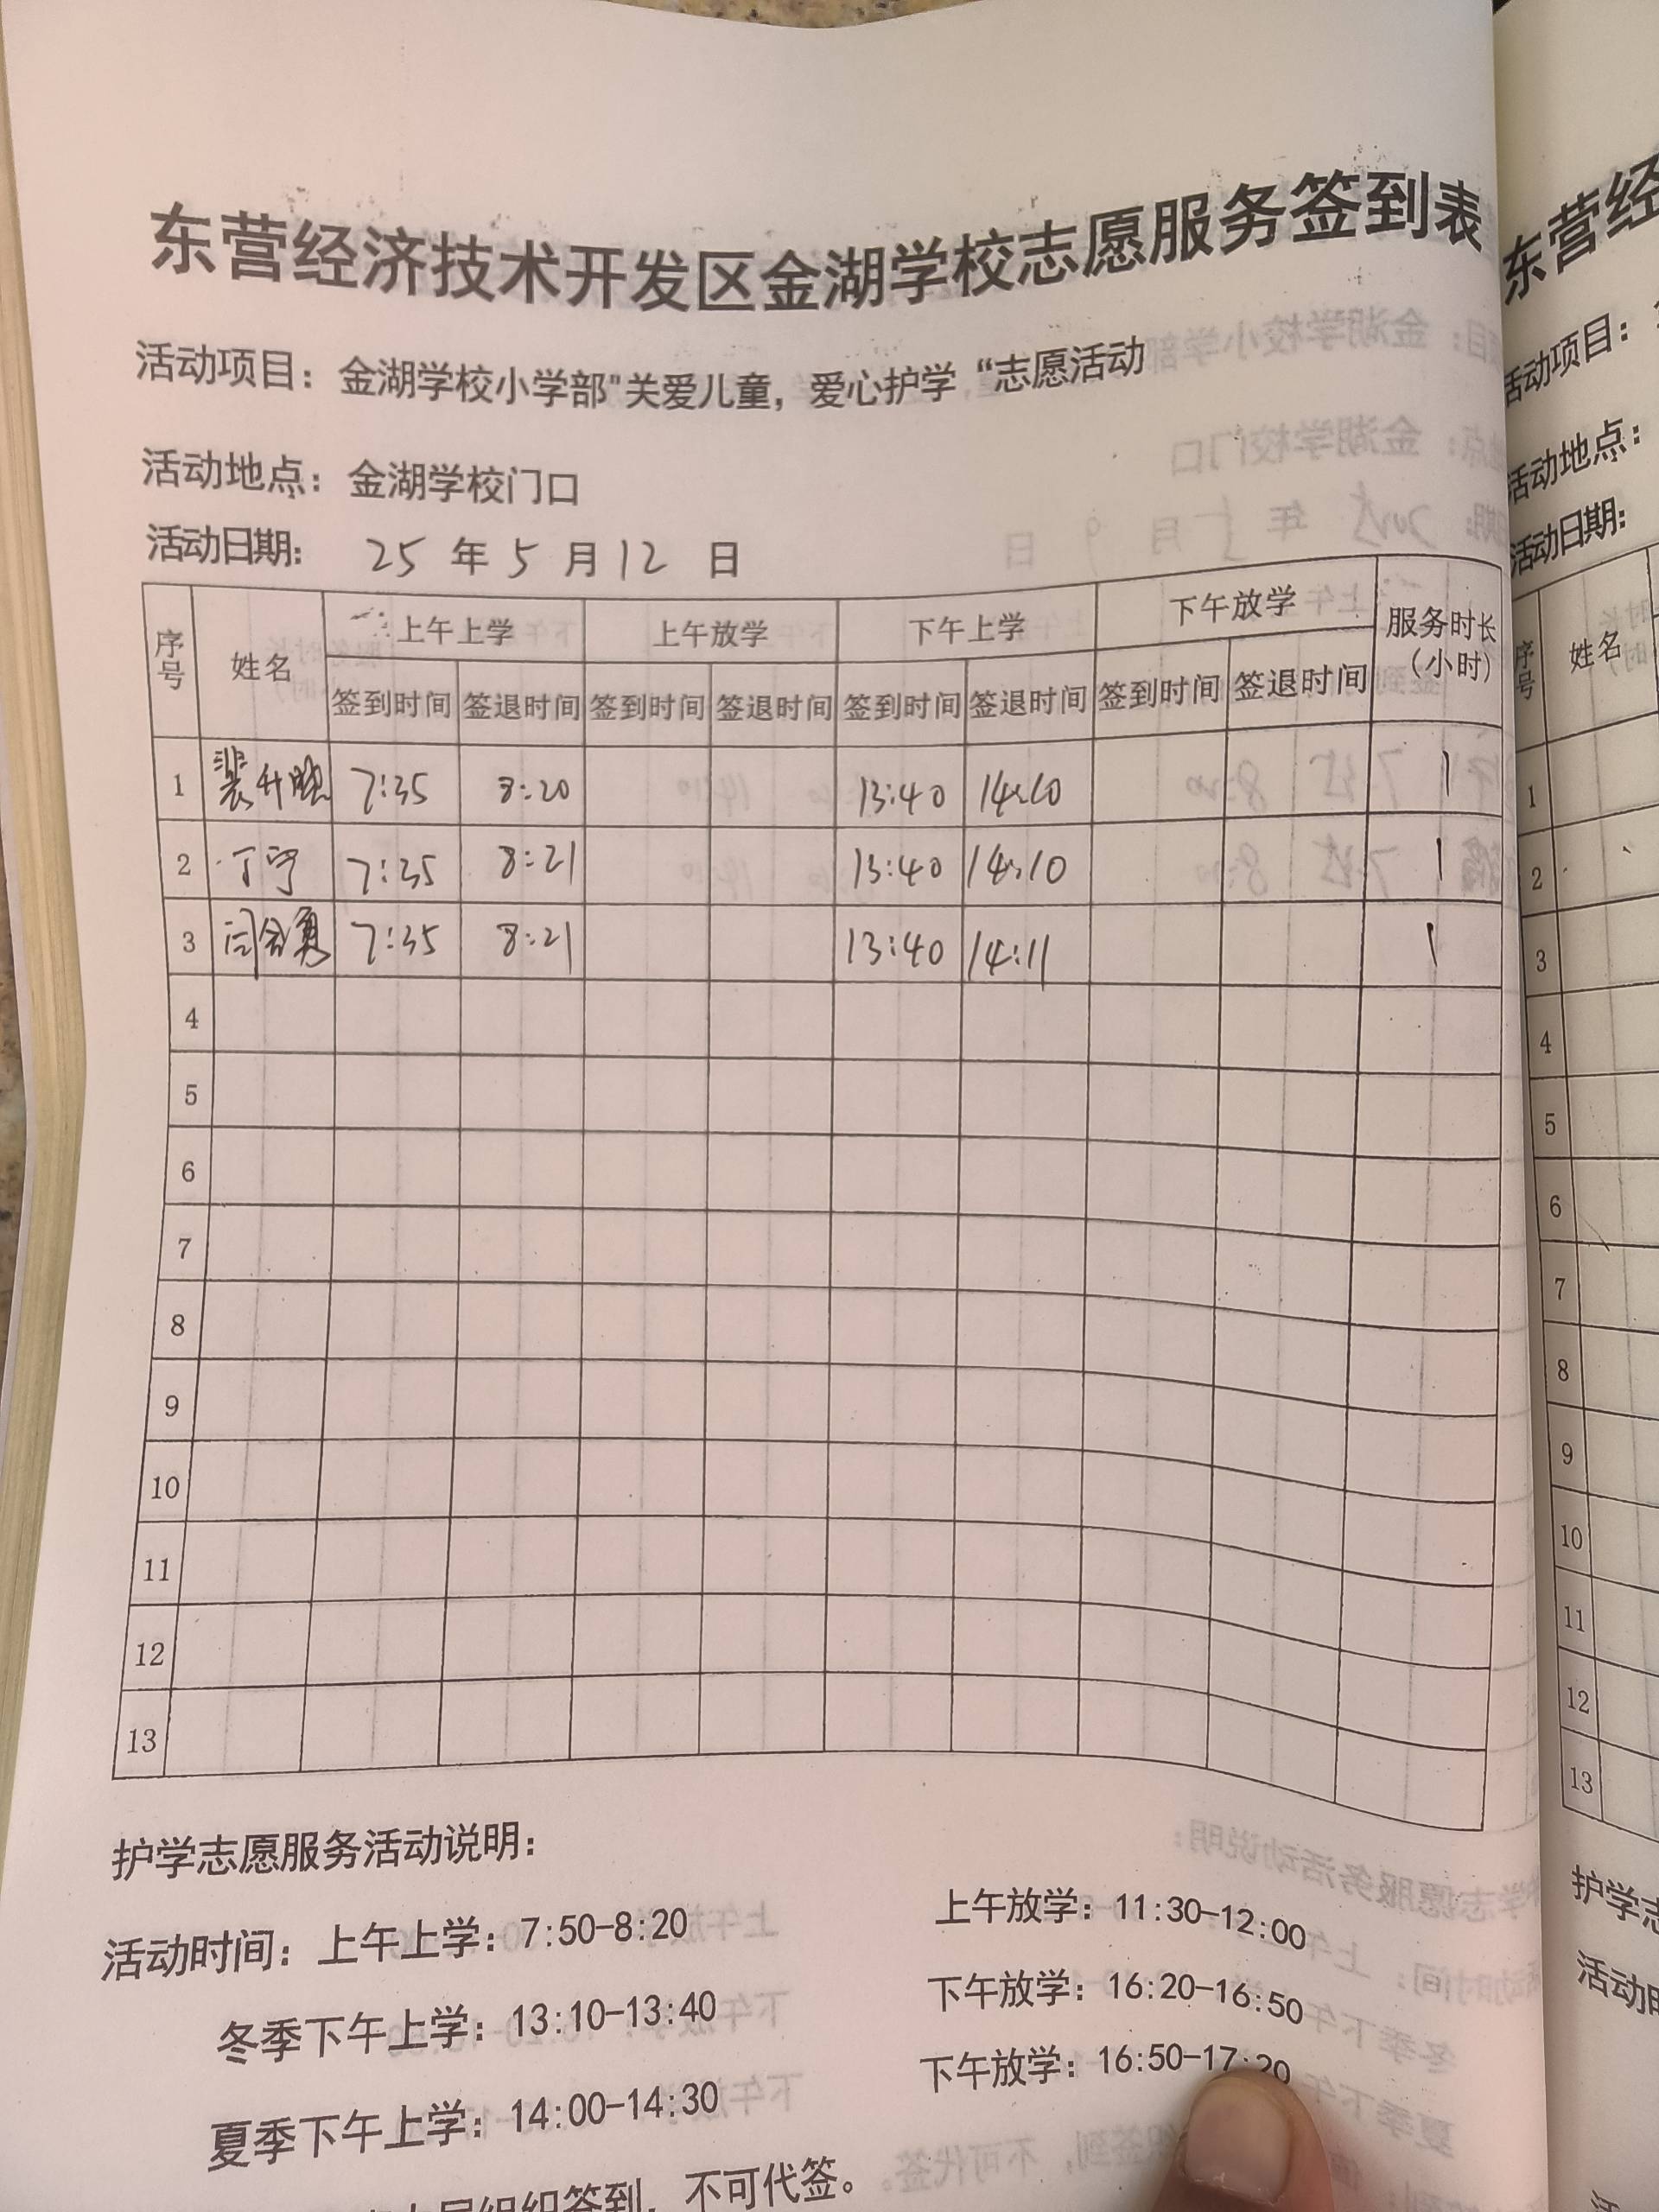 东营经济技术开发区金湖学校志愿服务签到表
活动项目：金湖学校小学部"关爱儿童，爱心护学“志愿活动
活动地点：金湖学校门口
活动日期： 25 年 5 月 12 日
序号 姓名 上午上学 上午放学 下午上学 下午放学 服务时长（小时）
签到时间 签退时间 签到时间 签退时间 签到时间 签退时间 签到时间 签退时间
1 裴升 7:35 8:20 13:40 14:10 1
2 丁宁 7:35 8:21 13:40 14:10 1
3 闫会勇 7:35 8:21 13:40 14:11 1
4
5
6
7
8
9
10
11
12
13
护学志愿服务活动说明：
活动时间：上午上学：7:50-8:20 上午放学：11:30-12:00
冬季下午上学：13:10-13:40 下午放学：16:20-16:50
夏季下午上学：14:00-14:30 下午放学：16:50-17:20
组织签到，不可代签。
东营经
活动项目：
活动地点：
活动日期：
序号 姓名
1
2
3
4
5
6
7
8
9
10
11
12
13
护学志
活动时